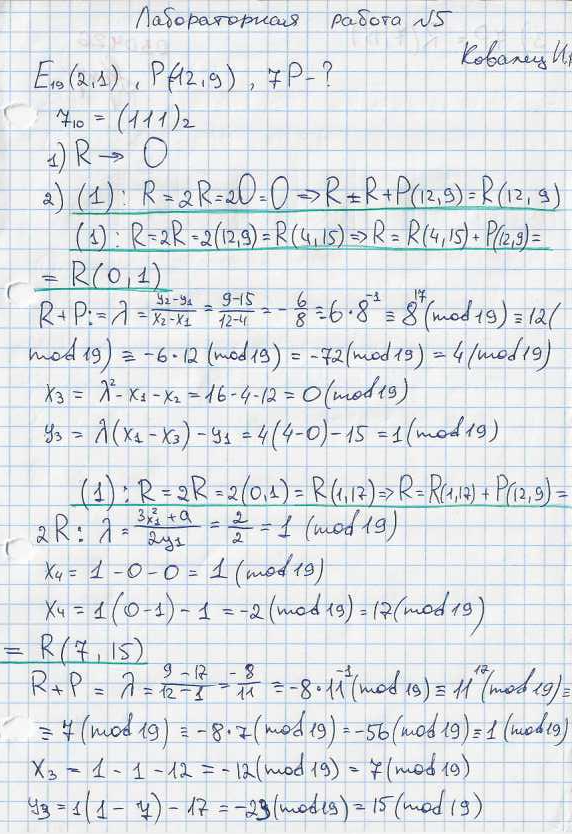 Лабораторная работа №5
Ковалец И.
E₁₉(2,1), P(12,9), 7P-?
7₁₀ = (111)₂
1) R → O
2) (1): R = 2R = 2O = O ⇒ R = R + P(12,9) = R(12,9)
(1): R = 2R = 2(12,9) = R(4,15) ⇒ R = R(4,15) + P(12,9) =
= R(0,1)
R+P: = λ = (y₂-y₁)/(x₂-x₁) = (9-15)/(12-4) = -6/8 ≡ 6·8⁻¹ ≡ 8¹⁷(mod 19) ≡ 12(
mod 19) ≡ -6·12 (mod 19) = -72(mod 19) = 4(mod 19)
x₃ = λ² - x₁ - x₂ = 16-4-12 = 0(mod 19)
y₃ = λ(x₁-x₃) - y₁ = 4(4-0) - 15 = 1(mod 19)
(1): R = 2R = 2(0,1) = R(1,17) ⇒ R = R(1,17) + P(12,9) =
2R: λ = (3x₁²+a)/(2y₁) = 2/2 = 1 (mod 19)
x₄ = 1 - 0 - 0 = 1 (mod 19)
x₄ = 1(0-1) - 1 = -2(mod 19) = 17(mod 19)
= R(7,15)
R+P = λ = (9-17)/(12-1) = -8/11 ≡ -8·11⁻¹(mod 19) ≡ 11¹⁷(mod 19) ≡
≡ 7(mod 19) ≡ -8·7(mod 19) = -56(mod 19) ≡ 1(mod 19)
x₃ = 1 - 1 - 12 = -12(mod 19) = 7(mod 19)
y₃ = 1(1-7) - 17 = -23(mod 19) = 15(mod 19)